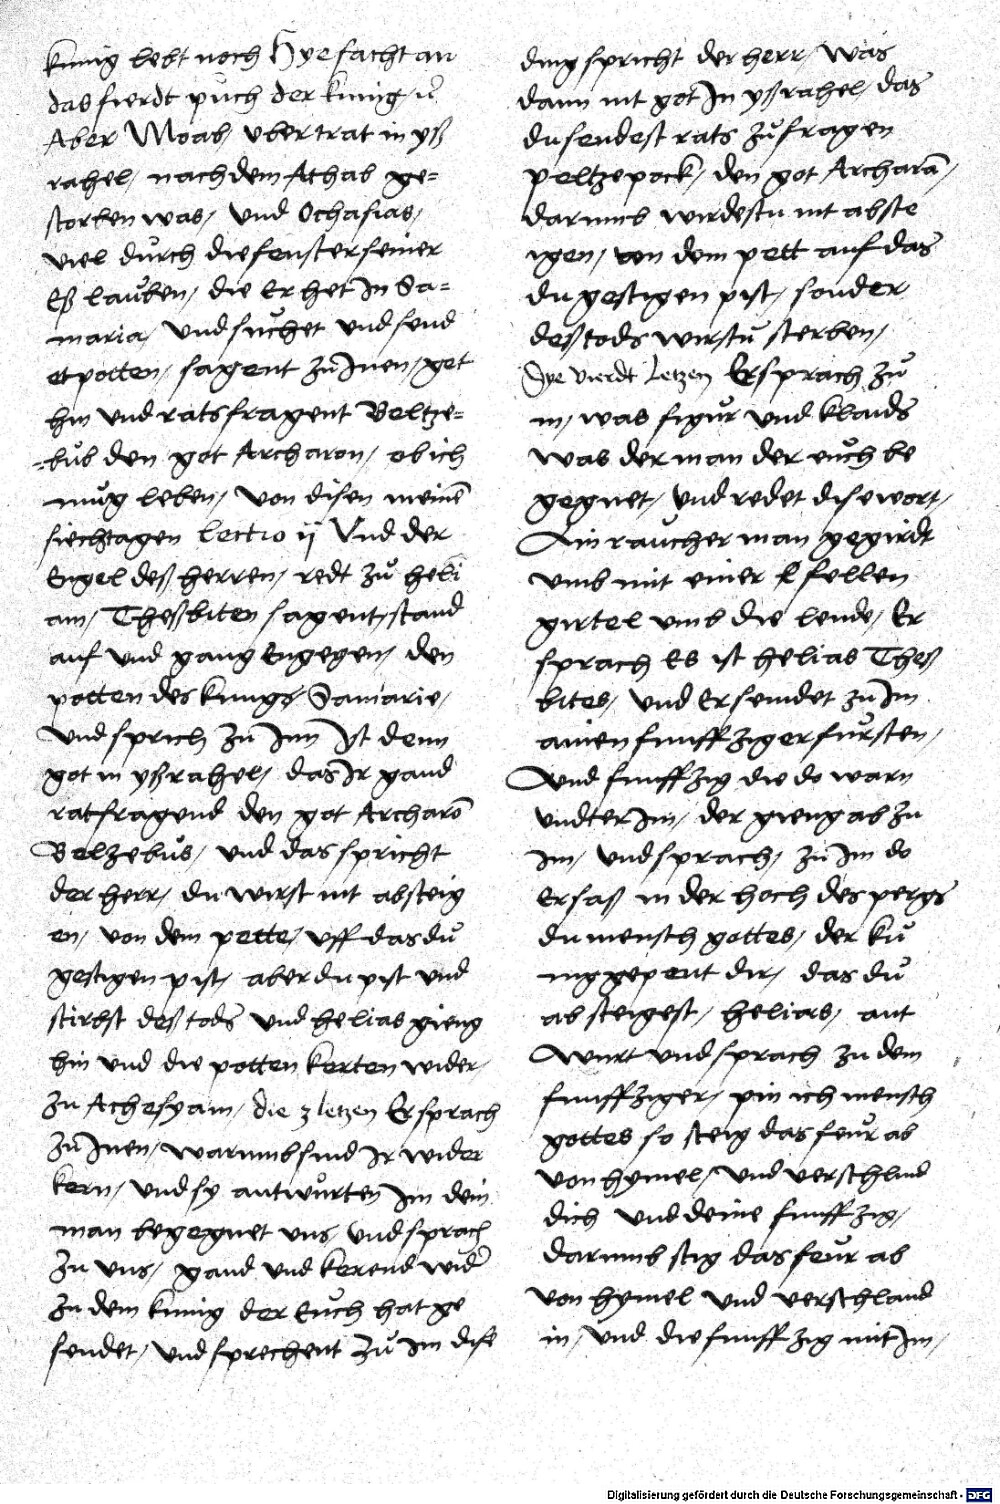 kunig lebt noch Hye facht an
das fierdt puch der kunig
Aber Moab ubertrat in yß
rahel / nach dem Athab ge=
storben was / und Ochasias /
viel durch die fenster seiner
Eß lauben / die Er het In Sa=
maria / und suchet und send
et potten / sagent zu Inen / get
hin und ratsfragent Beltze=
=bub den got Archaron / ob ich
mug leben / von disen meinē
siechtagen Lectio ij Und der
Engel deß herren / redt zu heli
am / Theßbiten sagent / stand
auf und gang Engegen / den
potten des kungs / Samarie /
und sprich zu Inn Ist denn
got in yßrahel / das Ir gand
ratfragend den got Archarō
Belzebub / und das spricht
der herr / du wirst nit absteig
en / von dem pette / uff das du
gestigen pist / aber du pist und
stirbst deß tods und helias gieng
hin und die potten kerten wider /
zu Achesyam / die 3 letzen Er sprach
zu Inen / warumb sind Ir wider
kern / und sy antwurten Im dein
man begegnet uns / und sprach
zu uns / gand und kerend widr
zu dem kunig der Euch hat ge
sendet / und sprechent zu Im dise
ding spricht der herr / was
dann nit got In yßrahel / das
du sendest rats zu fragen
peltzepock / den got Archarā /
darumb wirdestu nit abste
igen / von dem pett auf das
du gestigen pist / sonder
deß tods wirstu sterben /
Dye vierdt Letzen Er sprach zu
in / was figur und klaids
was der man der euch be
gegnet / und redet dise wort /
Ain raucher man gegirdt
umb mit einer fellen
girtel umb die lende / Er
sprach Es ist helias Theß
bites / und Er sendet zu Im
ainen funffzigerfursten /
und funffzig die do warn
undter Im / der gieng ab zu
Im / und sprach / zu Im do
Er saß in der hoch des pergs
du mensch gottes / der ku
nig gepeut dir / das du
ab steigest / helias / ant
wurt und sprach zu dem
funffziger / pin ich mensch
gottes so steig das feur ab
von hymel / und verschlind
dich und deine funffzig /
darumb stig das feur ab
von hymel und verschland
in / und die funffzig mit Im /
Digitalisierung gefördert durch die Deutsche Forschungsgemeinschaft - DFG